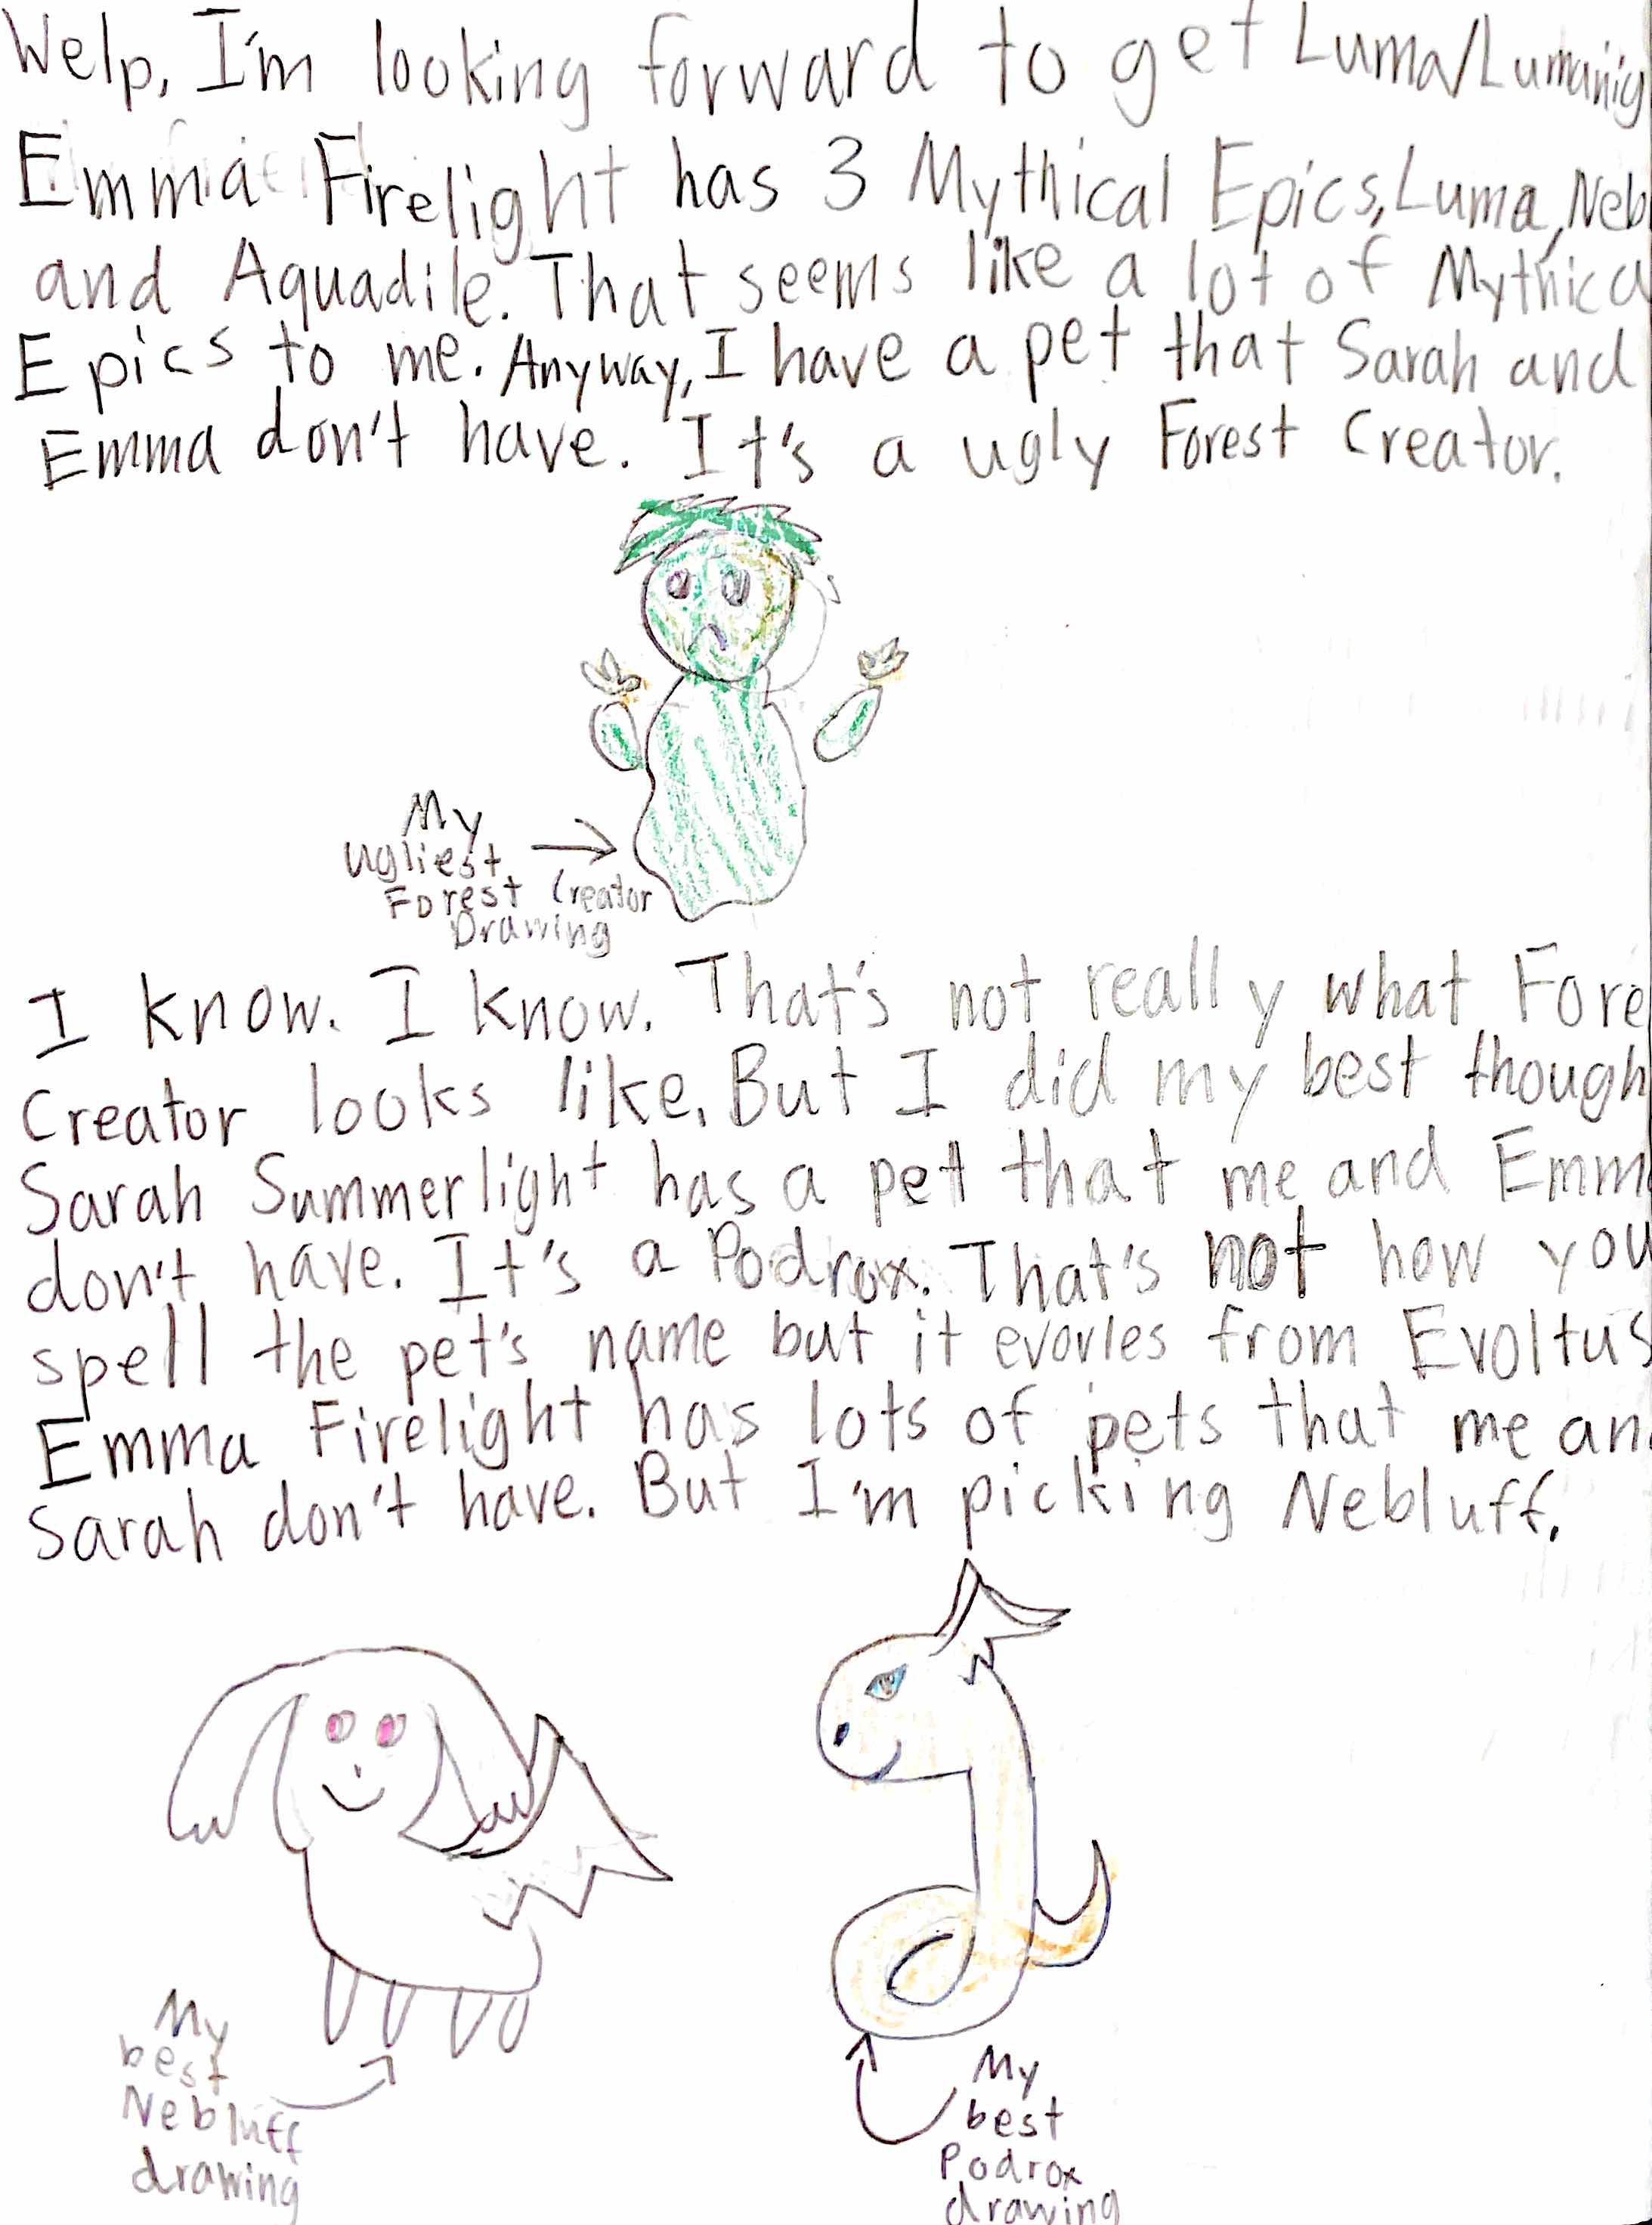 Welp, I'm looking forward to get Luma/Lumanig
Emma Firelight has 3 Mythical Epics, Luma, Neb
and Aquadile. That seems like a lot of Mythica
Epics to me. Anyway, I have a pet that Sarah and
Emma don't have. It's a ugly Forest Creator.
My
ugliest
Forest Creator
Drawing
I know. I know. That's not really what Fore
Creator looks like. But I did my best though
Sarah Summerlight has a pet that me and Emm
don't have. It's a Podrox. That's not how you
spell the pet's name but it evovles from Evoltus
Emma Firelight has lots of pets that me an
Sarah don't have. But I'm picking Nebluff.
My
best
Nebluff
drawing
My
best
Podrox
drawing